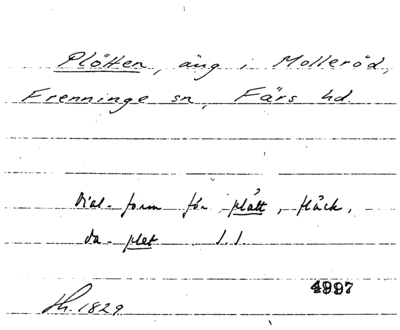 Plötten, äng i Molleröd,
Frenninge sn, Färs hd.
Dial. form för plått, fläck,
da. plet
4997
Sk. 1829